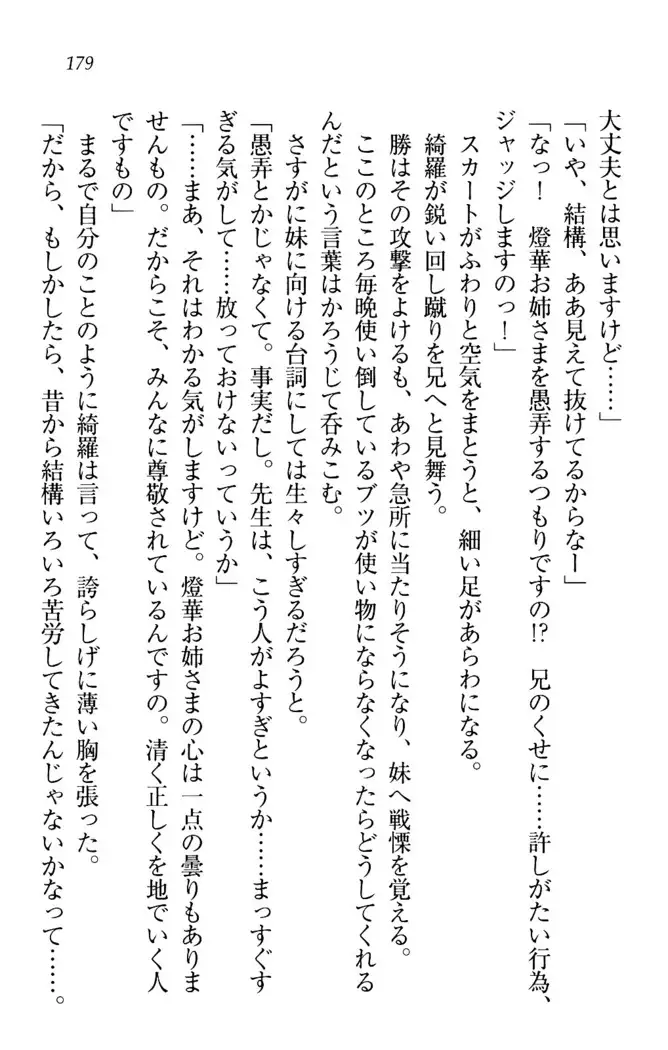 179
大丈夫とは思いますけど……」
「いや、結構、ああ見えて抜けてるからなー」
「なっ！　燈華お姉さまを愚弄するつもりですの!?　兄のくせに……許しがたい行為、
ジャッジしますのっ！」
スカートがふわりと空気をまとうと、細い足があらわになる。
綺羅が鋭い回し蹴りを兄へと見舞う。
勝はその攻撃をよけるも、あわや急所に当たりそうになり、妹へ戦慄を覚える。
ここのところ毎晩使い倒しているブツが使い物にならなくなったらどうしてくれる
んだという言葉はかろうじて呑みこむ。
さすがに妹に向ける台詞にしては生々しすぎるだろうと。
「愚弄とかじゃなくて。事実だし。先生は、こう人がよすぎというか……まっすぐす
ぎる気がして……放っておけないっていうか」
「……まあ、それはわかる気がしますけど。燈華お姉さまの心は一点の曇りもありま
せんもの。だからこそ、みんなに尊敬されているんですの。清く正しくを地でいく人
ですもの」
まるで自分のことのように綺羅は言って、誇らしげに薄い胸を張った。
「だから、もしかしたら、昔から結構いろいろ苦労してきたんじゃないかなって……。